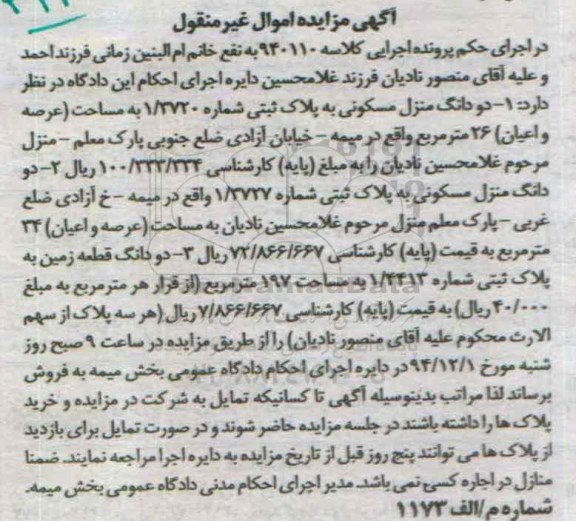 آگهی مزایده اموال غیر منقول
در اجرای حکم پرونده اجرایی کلاسه ۹۴۰۱۱۰ به نفع خانم ام البنین زمانی فرزند احمد
و علیه آقای منصور نادیان فرزند غلامحسین دایره اجرای احکام این دادگاه در نظر
دارد: ۱- دو دانگ منزل مسکونی به پلاک ثبتی شماره ۱/۳۷۲۰ به مساحت (عرصه
و اعیان) ۲۶ متر مربع واقع در میمه - خیابان آزادی ضلع جنوبی پارک معلم - منزل
مرحوم غلامحسین نادیان را به مبلغ (پایه) کارشناسی ۱۰۰/۳۳۳/۳۳۴ ریال ۲- دو
دانگ منزل مسکونی به پلاک ثبتی شماره ۱/۳۷۲۷ واقع در میمه - خ آزادی ضلع
غربی - پارک معلم منزل مرحوم غلامحسین نادیان به مساحت (عرصه و اعیان) ۳۴
متر مربع به قیمت (پایه) کارشناسی ۷۲/۸۶۶/۶۶۷ ریال ۳- دو دانگ قطعه زمین به
پلاک ثبتی شماره ۱/۴۴۱۳ به مساحت ۱۹۷ متر مربع (از قرار هر متر مربع به مبلغ
۴۰/۰۰۰ ریال) به قیمت (پایه) کارشناسی ۷/۸۶۶/۶۶۷ ریال (هر سه پلاک از سهم
الارث محکوم علیه آقای منصور نادیان) را از طریق مزایده در ساعت ۹ صبح روز
شنبه مورخ ۹۴/۱۲/۱ در دایره اجرای احکام دادگاه عمومی بخش میمه به فروش
برساند لذا مراتب بدینوسیله آگهی تا کسانیکه تمایل به شرکت در مزایده و خرید
پلاک ها را داشته باشند در جلسه مزایده حاضر شوند و در صورت تمایل برای بازدید
از پلاک ها می توانند پنج روز قبل از تاریخ مزایده به دایره اجرا مراجعه نمایند. ضمنا
منازل در اجاره کسی نمی باشد. مدیر اجرای احکام مدنی دادگاه عمومی بخش میمه.
شماره م/الف ۱۱۷۳